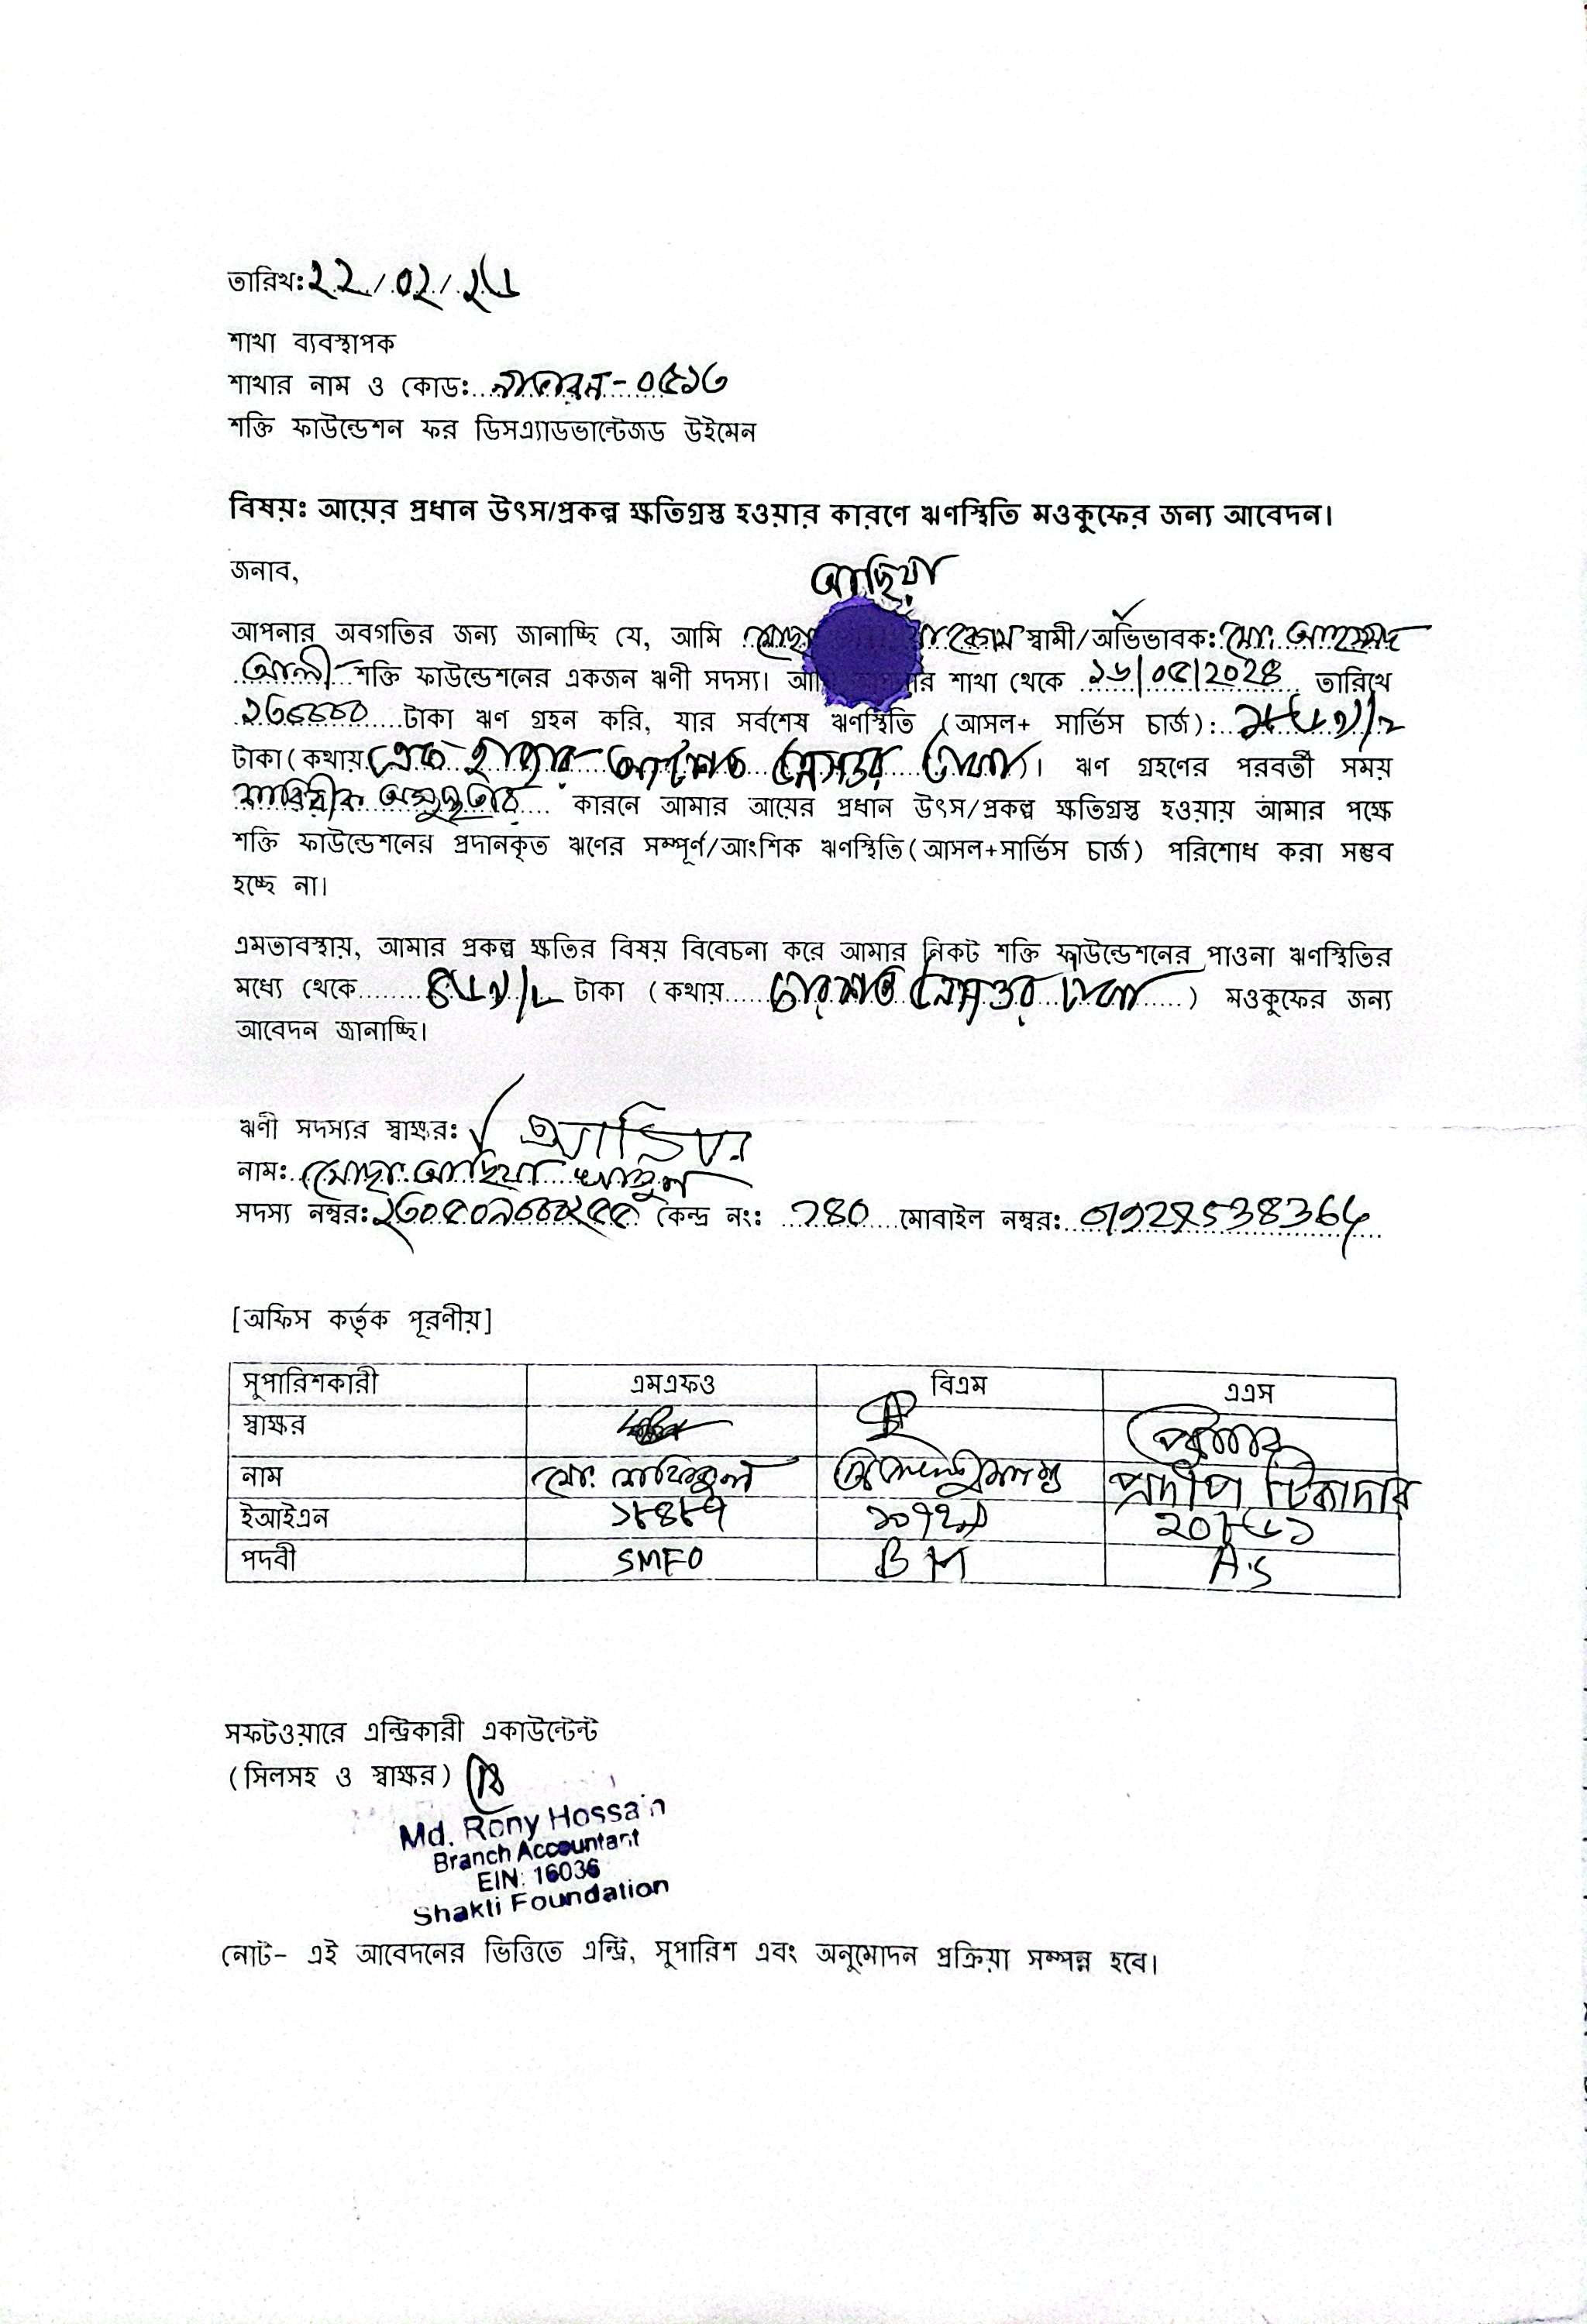 তারিখঃ ২২/০২/২৬
শাখা ব্যবস্থাপক
শাখার নাম ও কোডঃ - ০৫১৩
শক্তি ফাউন্ডেশন ফর ডিসএ্যাডভান্টেজড উইমেন
বিষয়ঃ আয়ের প্রধান উৎস/প্রকল্প ক্ষতিগ্রস্ত হওয়ার কারণে ঋণস্থিতি মওকুফের জন্য আবেদন।
জনাব,
আছিয়া
আপনার অবগতির জন্য জানাচ্ছি যে, আমি মোছা স্বামী/অভিভাবক: মো: আহম্মদ
আলী শক্তি ফাউন্ডেশনের একজন ঋণী সদস্য। শাখা থেকে ১৬/০৫/2024 তারিখে
টাকা ঋণ গ্রহন করি, যার সর্বশেষ ঋণস্থিতি (আসল+ সার্ভিস চার্জ):
টাকা (কথায় এক হাজার আটশত টাকা)। ঋণ গ্রহণের পরবর্তী সময়
শারিরীক অসুস্থতার কারনে আমার আয়ের প্রধান উৎস/প্রকল্প ক্ষতিগ্রস্ত হওয়ায় আমার পক্ষে
শক্তি ফাউন্ডেশনের প্রদানকৃত ঋণের সম্পূর্ণ/আংশিক ঋণস্থিতি(আসল+সার্ভিস চার্জ) পরিশোধ করা সম্ভব
হচ্ছে না।
এমতাবস্থায়, আমার প্রকল্প ক্ষতির বিষয় বিবেচনা করে আমার নিকট শক্তি ফাউন্ডেশনের পাওনা ঋণস্থিতির
মধ্যে থেকে টাকা (কথায় চারশত টাকা) মওকুফের জন্য
আবেদন জানাচ্ছি।
ঋণী সদস্যর স্বাক্ষর: আছিয়া
নাম: মোছা: আছিয়া খাতুন
সদস্য নম্বর: কেন্দ্র নং: ১৪০ মোবাইল নম্বর:
[অফিস কর্তৃক পূরণীয়]
সুপারিশকারী এমএফও বিএম এএস
স্বাক্ষর
নাম মো: প্রদীপ টিকাদার
ইআইএন ১৮৪৮৭
পদবী SMFO BM A.S
সফটওয়ারে এন্ট্রিকারী একাউন্টেন্ট
(সিলসহ ও স্বাক্ষর)
Md. Rony Hossain
Branch Accountant
EIN: 16036
Shakti Foundation
নোট- এই আবেদনের ভিত্তিতে এন্ট্রি, সুপারিশ এবং অনুমোদন প্রক্রিয়া সম্পন্ন হবে।